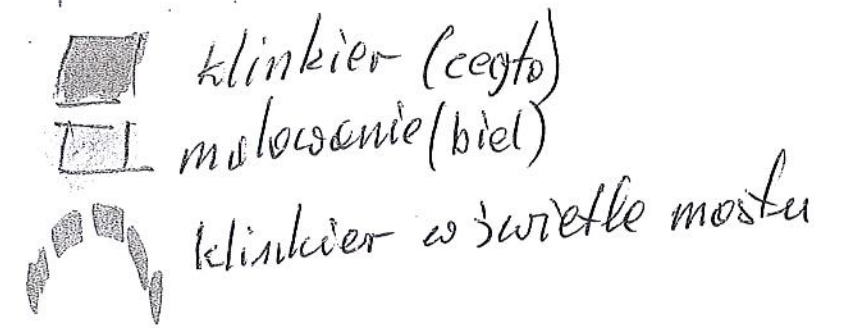 klinkier (cegła)
malowanie (biel)
klinkier w świetle mostu